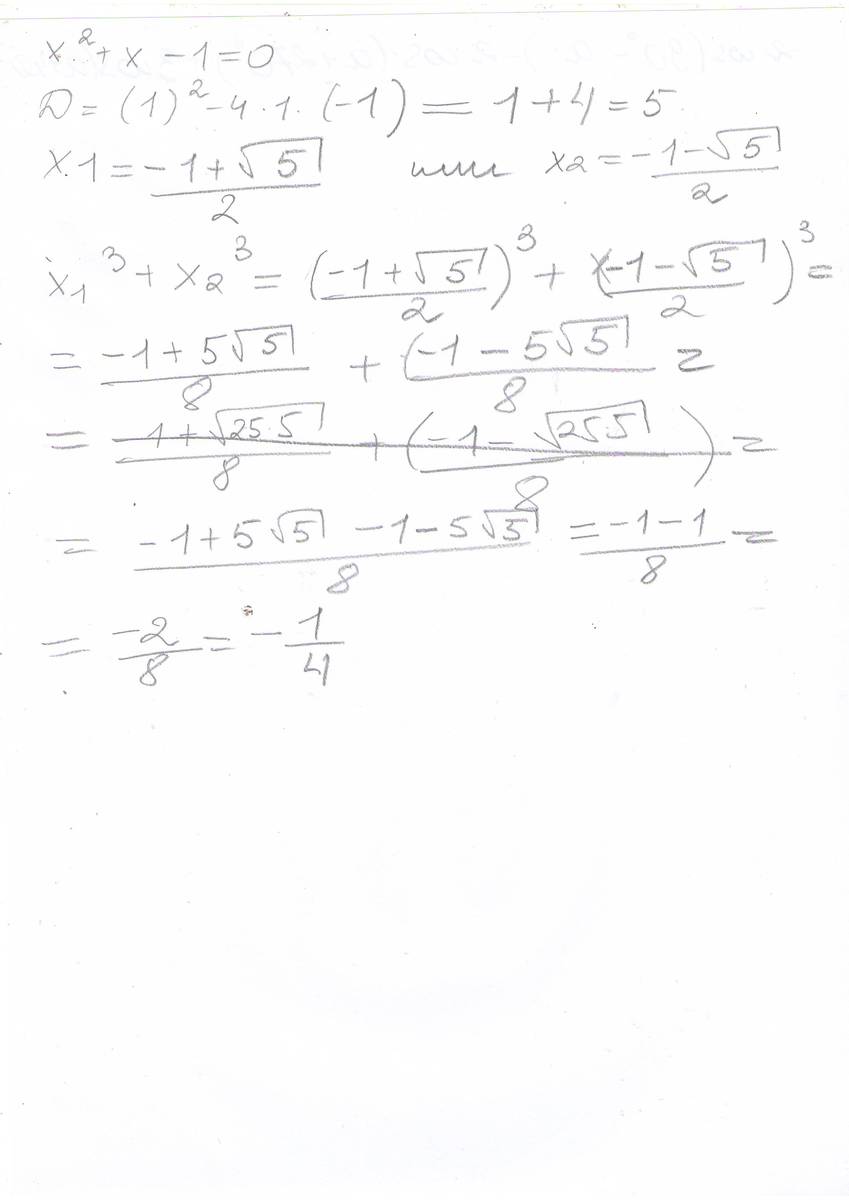 x² + x - 1 = 0
D = (1)² - 4 · 1 · (-1) = 1 + 4 = 5
x1 = (-1 + √5)/2 или x2 = (-1 - √5)/2
x₁³ + x₂³ = ((-1 + √5)/2)³ + ((-1 - √5)/2)³ =
= (-1 + 5√5)/8 + (-1 - 5√5)/8 =
= (1 + √25·5)/8 + ((-1 - √25·5)/8) =
= (-1 + 5√5 - 1 - 5√5)/8 = (-1 - 1)/8 =
= -2/8 = -1/4